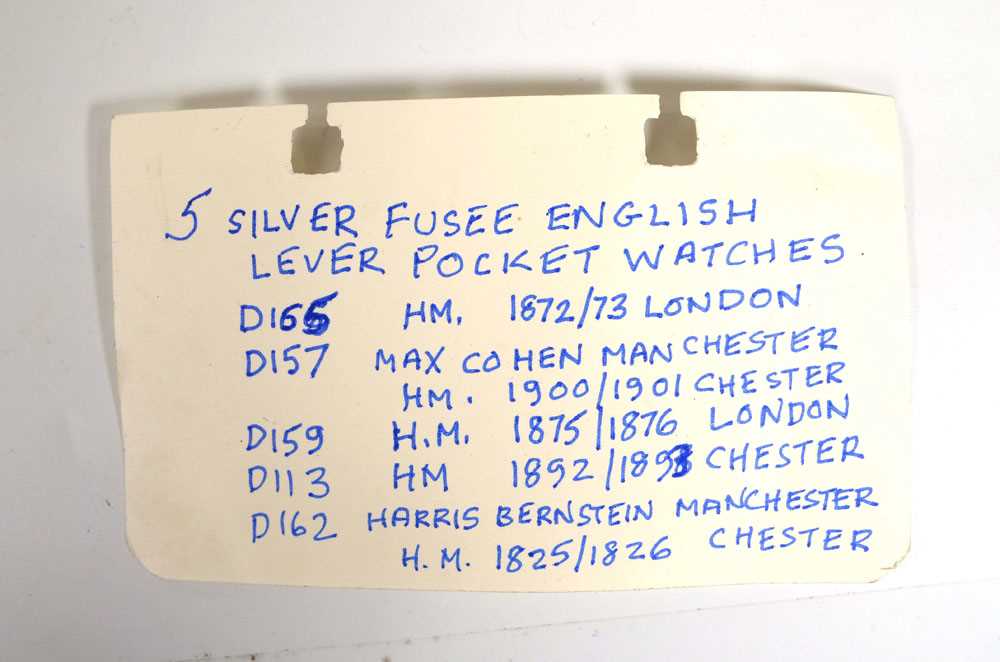 5 SILVER FUSEE ENGLISH
LEVER POCKET WATCHES
D165 HM. 1872/73 LONDON
D157 MAX COHEN MANCHESTER
HM. 1900/1901 CHESTER
D159 H.M. 1875/1876 LONDON
D113 HM 1892/1893 CHESTER
D162 HARRIS BERNSTEIN MANCHESTER
H.M. 1825/1826 CHESTER